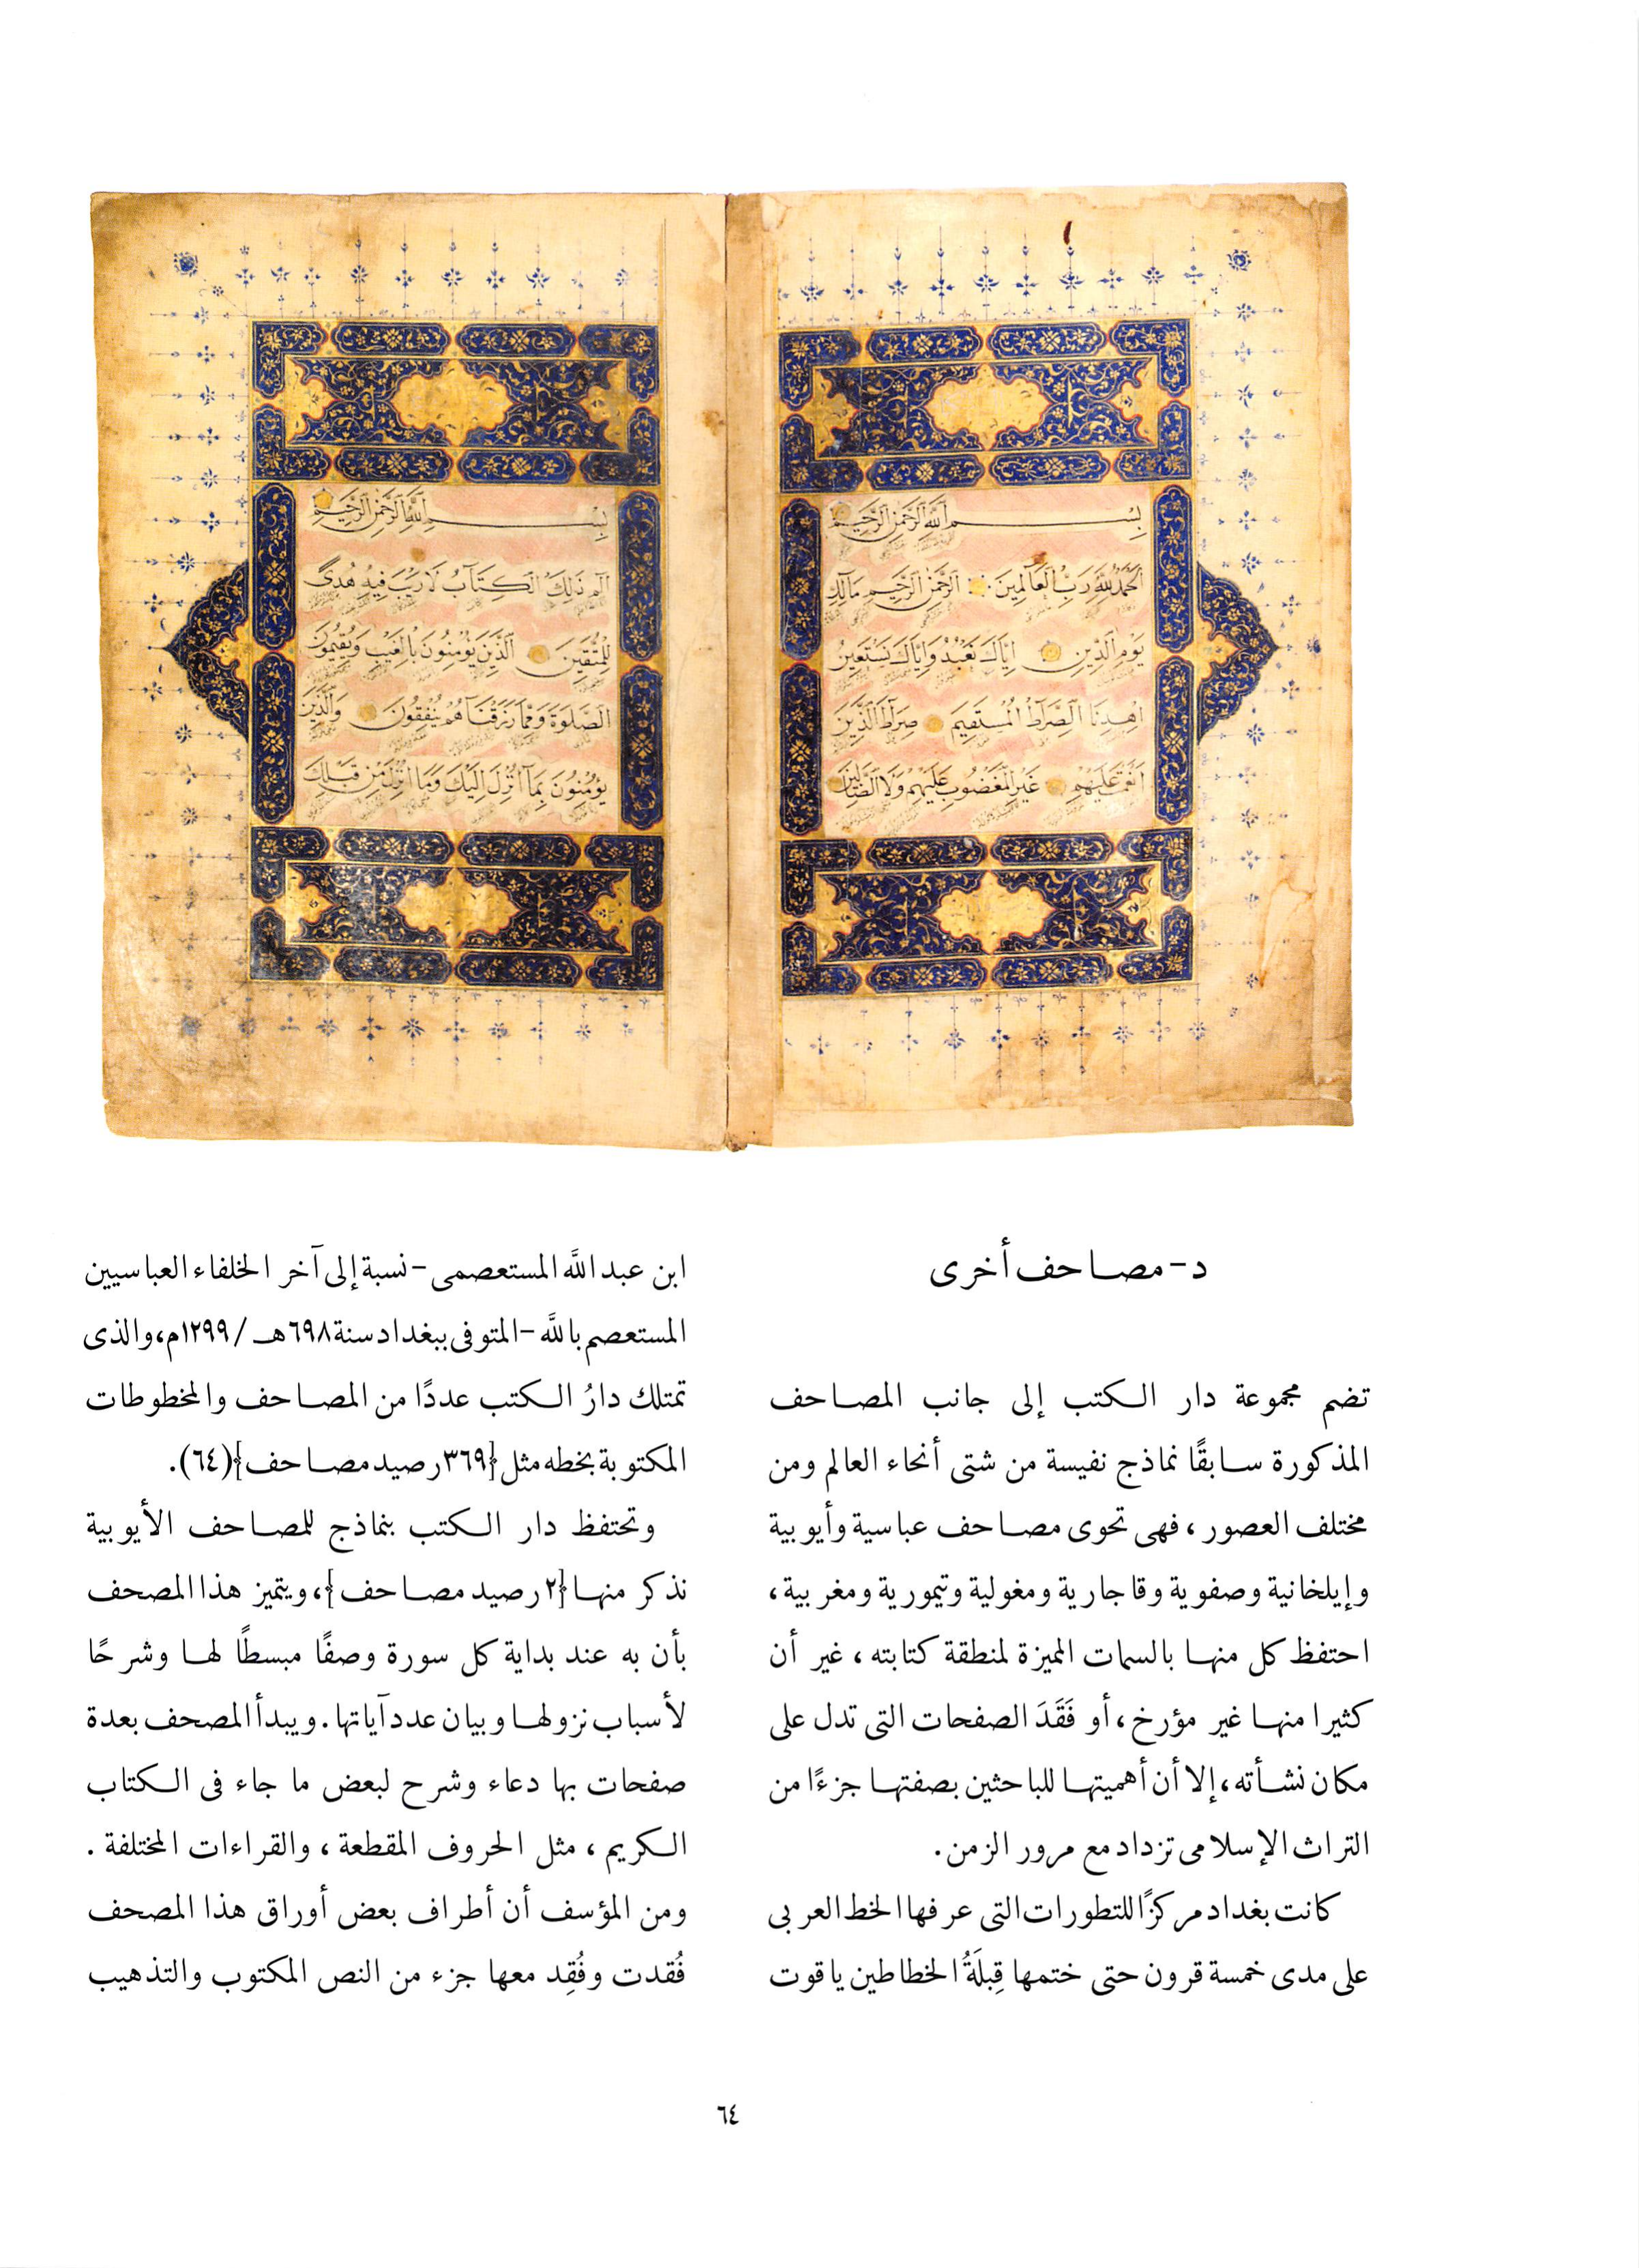 بِسْمِ اللَّهِ الرَّحْمَنِ الرَّحِيمِ
الْحَمْدُ لِلَّهِ رَبِّ الْعَالَمِينَ الرَّحْمَنِ الرَّحِيمِ مَالِكِ
يَوْمِ الدِّينِ اِيَّاكَ نَعْبُدُ وَاِيَّاكَ نَسْتَعِينُ
اِهْدِنَا الصِّرَاطَ الْمُسْتَقِيمَ صِرَاطَ الَّذِينَ
اَنْعَمْتَ عَلَيْهِمْ غَيْرِ الْمَغْضُوبِ عَلَيْهِمْ وَلَا الضَّالِّينَ
بِسْمِ اللَّهِ الرَّحْمَنِ الرَّحِيمِ
الم ذَلِكَ الْكِتَابُ لَا رَيْبَ فِيهِ هُدًى
لِلْمُتَّقِينَ الَّذِينَ يُؤْمِنُونَ بِالْغَيْبِ وَيُقِيمُونَ
الصَّلٰوةَ وَمِمَّا رَزَقْنَاهُمْ يُنْفِقُونَ وَالَّذِينَ
يُؤْمِنُونَ بِمَا اُنْزِلَ اِلَيْكَ وَمَا اُنْزِلَ مِنْ قَبْلِكَ
د- مصاحف أخرى
تضم مجموعة دار الكتب إلى جانب المصاحف
المذكورة سابقًا نماذج نفيسة من شتى أنحاء العالم ومن
مختلف العصور، فهى تحوى مصاحف عباسية وأيوبية
وإيلخانية وصفوية وقاجارية ومغولية وتيمورية ومغربية،
احتفظ كل منها بالسمات المميزة لمنطقة كتابته، غير أن
كثيرا منها غير مؤرخ، أو فَقَدَ الصفحات التى تدل على
مكان نشأته، إلا أن أهميتها للباحثين بصفتها جزءًا من
التراث الإسلامى تزداد مع مرور الزمن.
كانت بغداد مركزًا للتطورات التى عرفها الخط العربى
على مدى خمسة قرون حتى ختمها قِبلَةُ الخطاطين ياقوت
ابن عبد اللَّه المستعصمى - نسبة إلى آخر الخلفاء العباسيين
المستعصم باللَّه - المتوفى ببغداد سنة ٦٩٨هـ / ١٢٩٩م، والذى
تمتلك دارُ الكتب عددًا من المصاحف والمخطوطات
المكتوبة بخطه مثل {٣٦٩ رصيد مصاحف} (٦٤).
وتحتفظ دار الكتب بنماذج للمصاحف الأيوبية
نذكر منها {٢ رصيد مصاحف}، ويتميز هذا المصحف
بأن به عند بداية كل سورة وصفًا مبسطًا لها وشرحًا
لأسباب نزولها وبيان عدد آياتها. ويبدأ المصحف بعدة
صفحات بها دعاء وشرح لبعض ما جاء فى الكتاب
الكريم، مثل الحروف المقطعة، والقراءات المختلفة.
ومن المؤسف أن أطراف بعض أوراق هذا المصحف
فُقدت وفُقِد معها جزء من النص المكتوب والتذهيب
٦٤